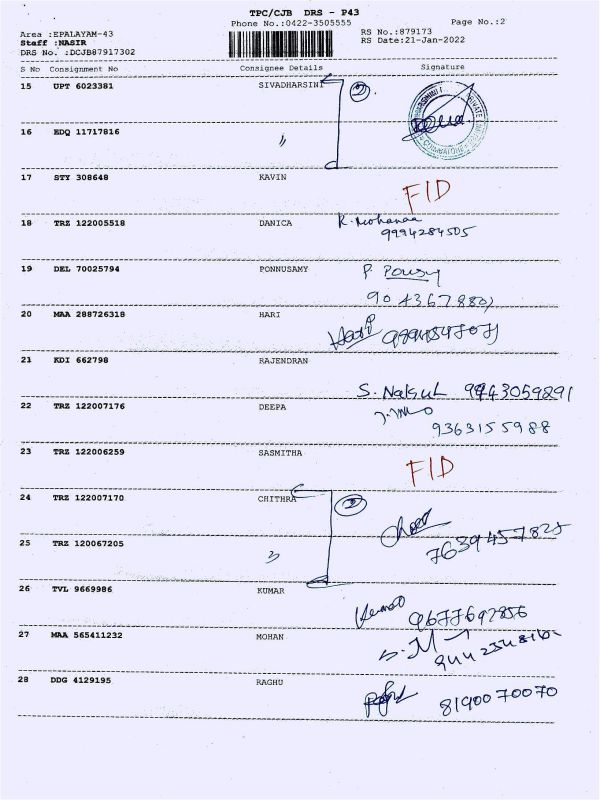 TPC/CJB DRS - P43
Phone No.:0422-3505555 Page No.:2
Area :EPALAYAM-43 RS No.:879173
Staff :NASIR RS Date:21-Jan-2022
DRS No. :DCJB87917302
S No Consignment No Consignee Details Signature
15 UPT 6023381 SIVADHARSINI 2
16 EDQ 11717816 "
17 STY 308648 KAVIN FID
18 TRZ 122005518 DANICA R. Mohanaa
9994284505
19 DEL 70025794 PONNUSAMY P Pousy
20 MAA 288726318 HARI Hari
21 KDI 662798 RAJENDRAN
S. Nakul 9943059891
22 TRZ 122007176 DEEPA
9363155988
23 TRZ 122006259 SASMITHA FID
24 TRZ 122007170 CHITHRA 2
25 TRZ 120067205 "
7639457825
26 TVL 9669986 KUMAR
9677697856
27 MAA 565411232 MOHAN S. M
28 DDG 4129195 RAGHU
8190070070